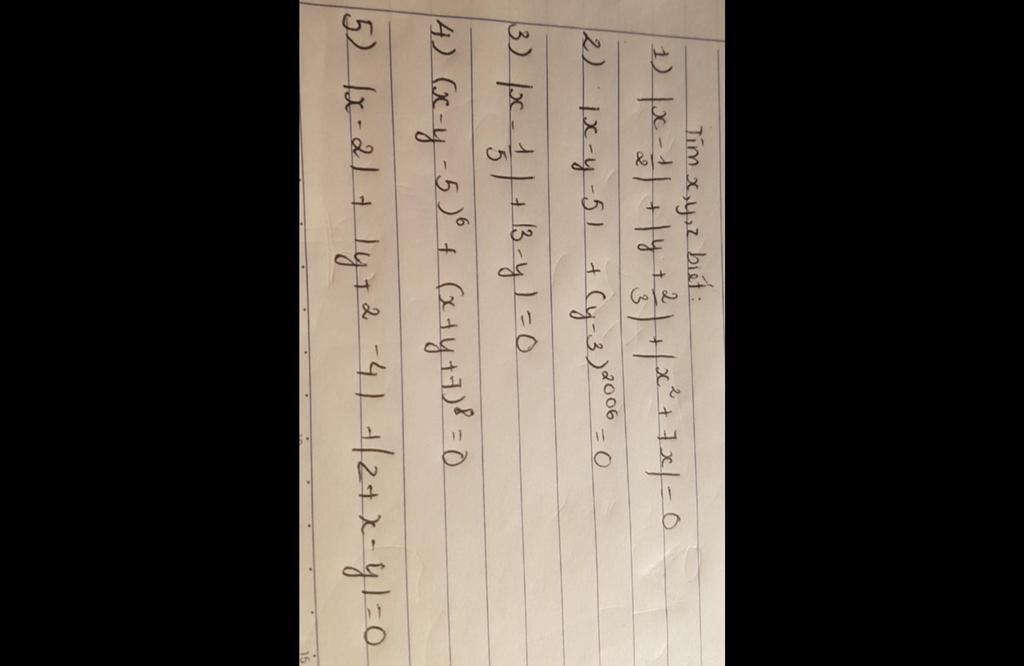 Tìm x,y,z biết:
1) |x - 1/2| + |y + 2/3| + |x² + 7x| = 0
2) |x - y - 5| + (y - 3)²⁰⁰⁶ = 0
3) |x - 1/5| + |3 - y| = 0
4) (x - y - 5)⁶ + (x + y + 7)⁸ = 0
5) |x - 2| + |y + 2 - 4| + |2 + x - y| = 0
15